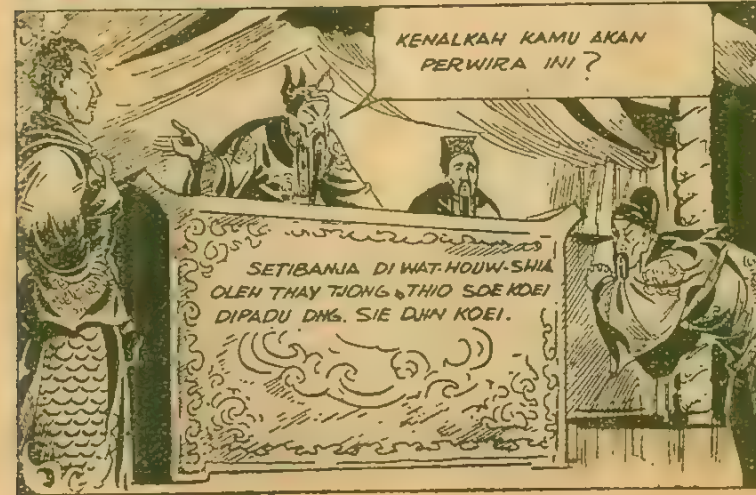 KENALKAH KAMU AKAN
PERWIRA INI?
SETIBANJA DI WAT-HOUW-SHIA
OLEH THAY TJONG, THIO SOE KOEI
DIPADU DNG. SIE DJIN KOEI.